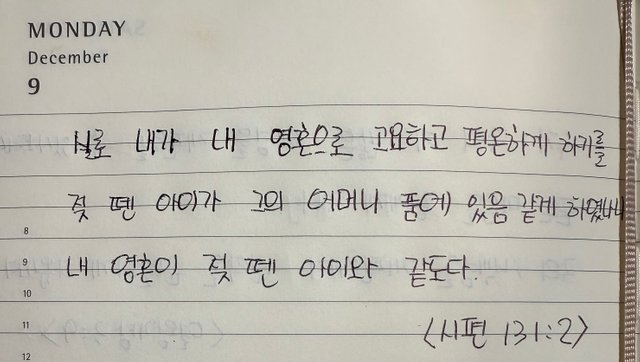 MONDAY
December
9
실로 내가 내 영혼으로 고요하고 평온하게 하기를
젖 뗀 아이가 그의 어머니 품에 있음 같게 하였나니
8
9 내 영혼이 젖 뗀 아이와 같도다.
10
11 <시편 131:2>
12